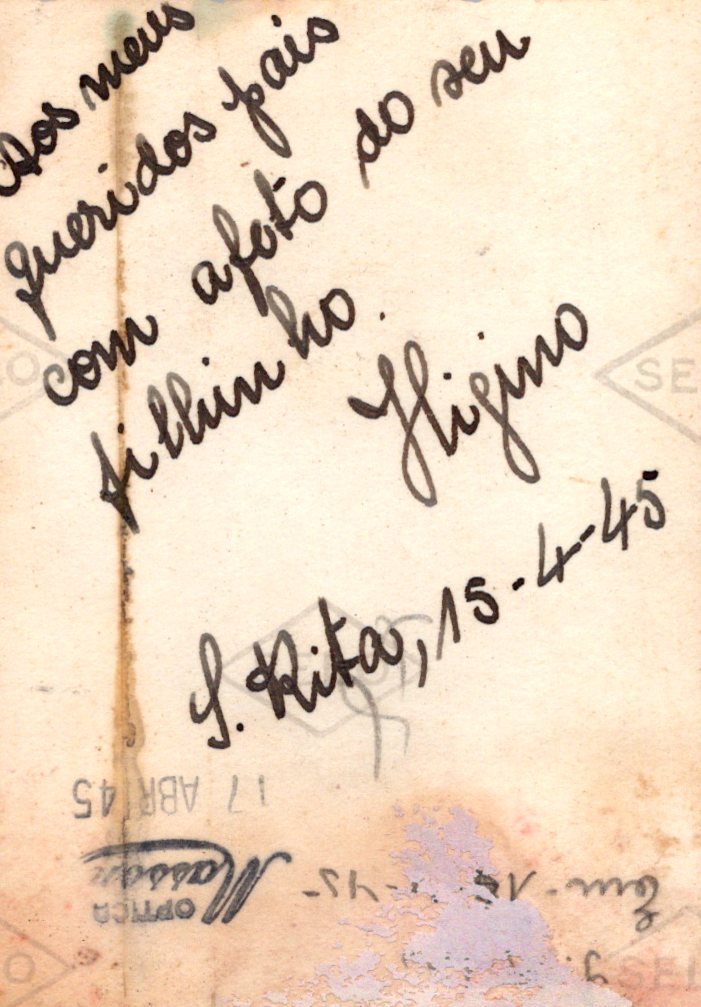 Aos meus
queridos pais
com a foto do seu
filhinho.
Higino
S. Rita, 15-4-45
SELO
17 ABR 45
OPTICA
Masson
Em-